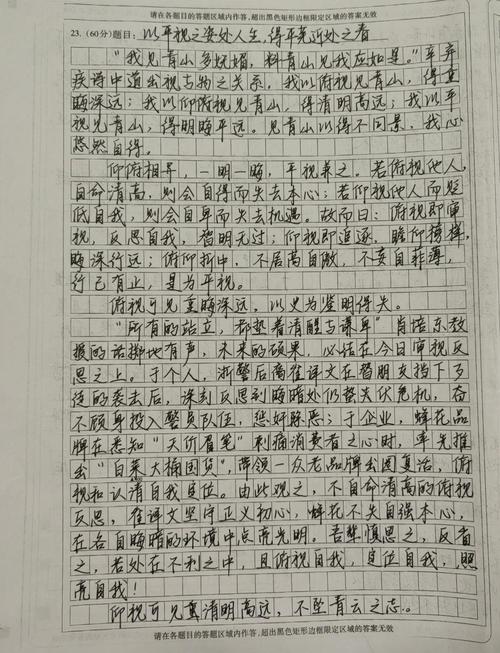 请在各题目的答题区域内作答,超出黑色矩形边框限定区域的答案无效
23.(60分)题目:以平视之姿处人生,得平亮近处之春
“我见青山多妩媚,料青山见我应如是。”辛弃
疾诗中道出视与物之关系,我以俯视见青山,得重
晦深远;我以仰视见青山,得清明高远;我以平
视见青山,得明晦平远。见青山以得不同景,我心
悠然自得。
仰俯相异,一明一晦,平视兼之。若俯视他人,
自命清高,则会自得而失去本心;若仰视他人而贬
低自我,则会自卑而失去机遇。故而曰:俯视即审
视,反思自我,智明无过;仰视即追逐,瞻仰榜样,
晦深行远;俯仰折中,不居高自傲,不妄自菲薄,
行己有止,是为平视。
俯视可见重晦深远,以史为鉴明得失。
“所有的站立,都垫着清醒与谦卑”肖培东教
授的话掷地有声,未来的硕果,必活在今日审视反
思之上。于个人,浙警后高崔译文在替朋友挡下歹
徒的袭击后,深刻反思到晦暗处仍蛰伏危机,奋
不顾身投入警员队伍,惩奸除恶;于企业,蜂花品
牌在悉知“天价眉笔”刺痛消费者之心时,率先推
出“白菜大桶国货”,带领一众老品牌出圈复活,俯
视和认清自我定位。由此观之,不自命清高的俯视
反思,崔译文坚守正义初心,蜂花不失自强本心,
在各自晦暗的环境中点亮光明。吾辈慎思之,反省
之,若处在不利之中,且俯视自我,定位自我,照
亮自我!
仰视可见重清明高远,不坠青云之志。
请在各题目的答题区域内作答,超出黑色矩形边框限定区域的答案无效